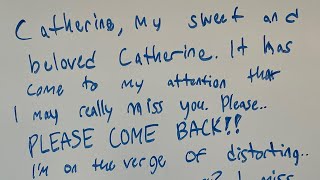 Catherine, my sweet and
beloved Catherine. It has
come to my attention that
I may really miss you. Please..
PLEASE COME BACK!!
I'm on the verge of distorting..
I miss